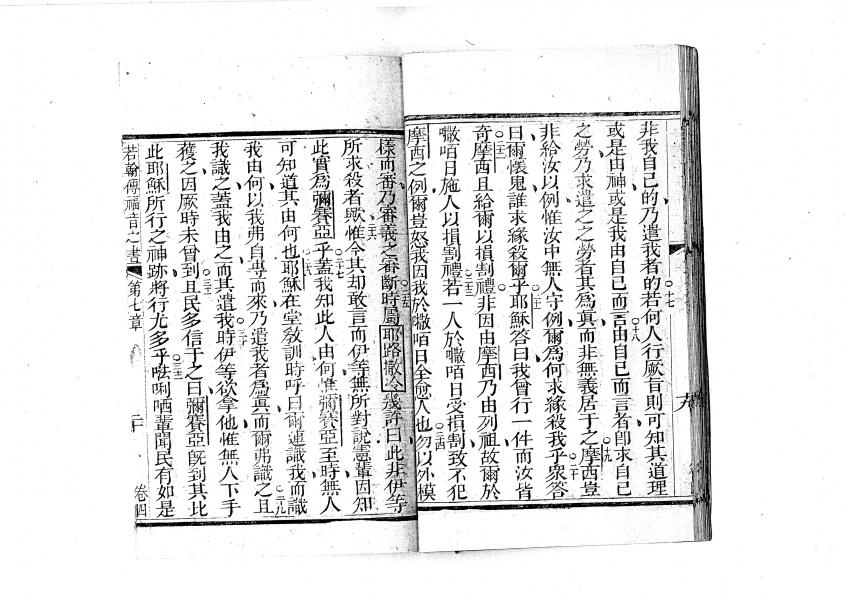 非我自己的乃遣我者的○十七若何人行厥旨則可知其道理
或是由神或是我由自己而言○十八由自己而言者卽求自己
之勞乃求遣之之勞者其爲眞而非無義居于之○十九摩西豈
非給汝以例惟汝中無人守例爾爲何求緣殺我乎○二十眾答
曰爾懷鬼誰求緣殺爾乎○二一耶穌答曰我曾行一件而汝皆
奇○二二摩西且給爾以損割禮非因由摩西乃由列祖故爾於
𠹌咟日施人以損割禮○二三若一人於𠹌咟日受損割致不犯
摩西之例爾豈怒我因我於𠹌咟日全愈人也○二四勿以外模
樣而審乃審義之審斷○二五時屬耶路撒冷幾許曰此非伊等
所求殺者歟○二六惟今其却敢言而伊等無所對說憲輩因知
此實爲彌賽亞乎○二七蓋我知此人由何惟彌賽亞至時無人
可知道其由何也○二八耶穌在堂教訓時呼曰爾連識我而識
我由何以我弗自專而來乃遣我者爲眞而爾弗識之○二九且
我識之蓋我由之而其遣我○三十時伊等欲拿他惟無人下手
獲之因厥時未曾到○三一且民多信于之曰彌賽亞旣到其比
此耶穌所行之神跡將行尤多乎○三二𠵽唎哂輩聞民有如是
若翰傳福音之書 第七章 二十 卷四